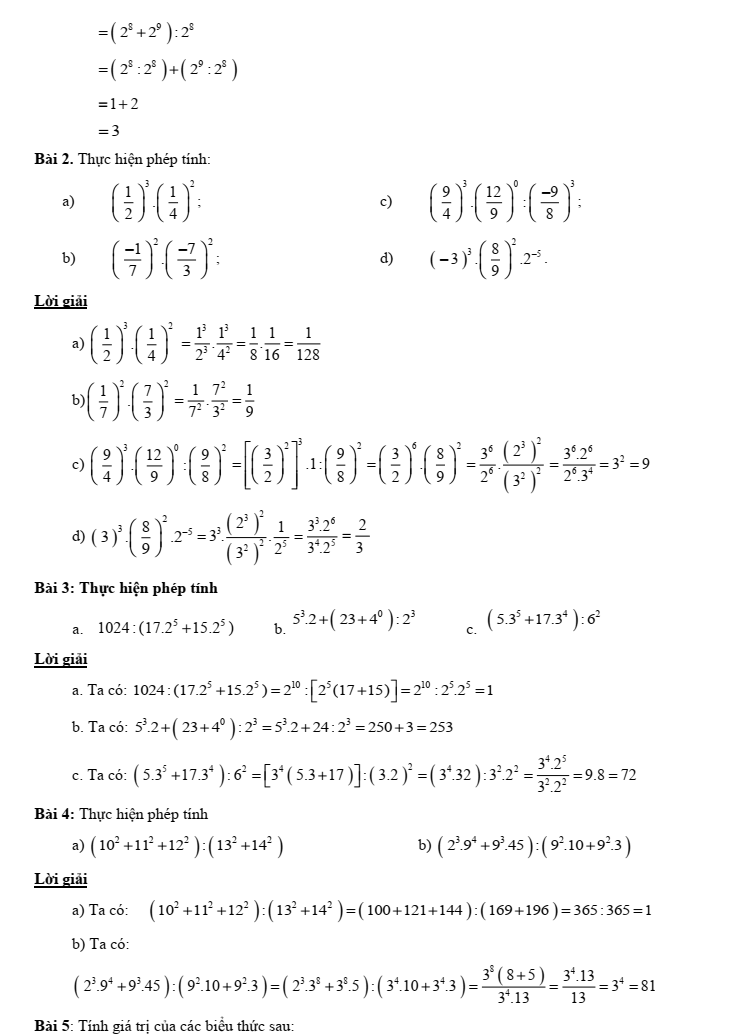 =(2⁸+2⁹):2⁸
=(2⁸:2⁸)+(2⁹:2⁸)
=1+2
=3
Bài 2. Thực hiện phép tính:
a) (1/2)³.(1/4)²; c) (9/4)³.(12/9)⁰:(−9/8)³;
b) (−1/7)².(−7/3)²; d) (−3)³.(8/9)².2⁻⁵.
Lời giải
a) (1/2)³.(1/4)² = 1³/2³.1³/4² = 1/8.1/16 = 1/128
b) (1/7)².(7/3)² = 1/7².7²/3² = 1/9
c) (9/4)³.(12/9)⁰:(9/8)² = [(3/2)²]³.1:(9/8)² = (3/2)⁶.(8/9)² = 3⁶/2⁶.(2³)²/(3²)² = 3⁶.2⁶/2⁶.3⁴ = 3² = 9
d) (3)³.(8/9)².2⁻⁵ = 3³.(2³)²/(3²)².1/2⁵ = 3³.2⁶/3⁴.2⁵ = 2/3
Bài 3: Thực hiện phép tính
a. 1024:(17.2⁵+15.2⁵) b. 5³.2+(23+4⁰):2³ c. (5.3⁵+17.3⁴):6²
Lời giải
a. Ta có: 1024:(17.2⁵+15.2⁵)=2¹⁰:[2⁵(17+15)]=2¹⁰:2⁵.2⁵=1
b. Ta có: 5³.2+(23+4⁰):2³=5³.2+24:2³=250+3=253
c. Ta có: (5.3⁵+17.3⁴):6²=[3⁴(5.3+17)]:(3.2)²=(3⁴.32):3².2²=3⁴.2⁵/3².2²=9.8=72
Bài 4: Thực hiện phép tính
a) (10²+11²+12²):(13²+14²) b) (2³.9⁴+9³.45):(9².10+9².3)
Lời giải
a) Ta có: (10²+11²+12²):(13²+14²)=(100+121+144):(169+196)=365:365=1
b) Ta có:
(2³.9⁴+9³.45):(9².10+9².3)=(2³.3⁸+3⁸.5):(3⁴.10+3⁴.3)=3⁸(8+5)/3⁴.13=3⁴.13/13=3⁴=81
Bài 5: Tính giá trị của các biểu thức sau: